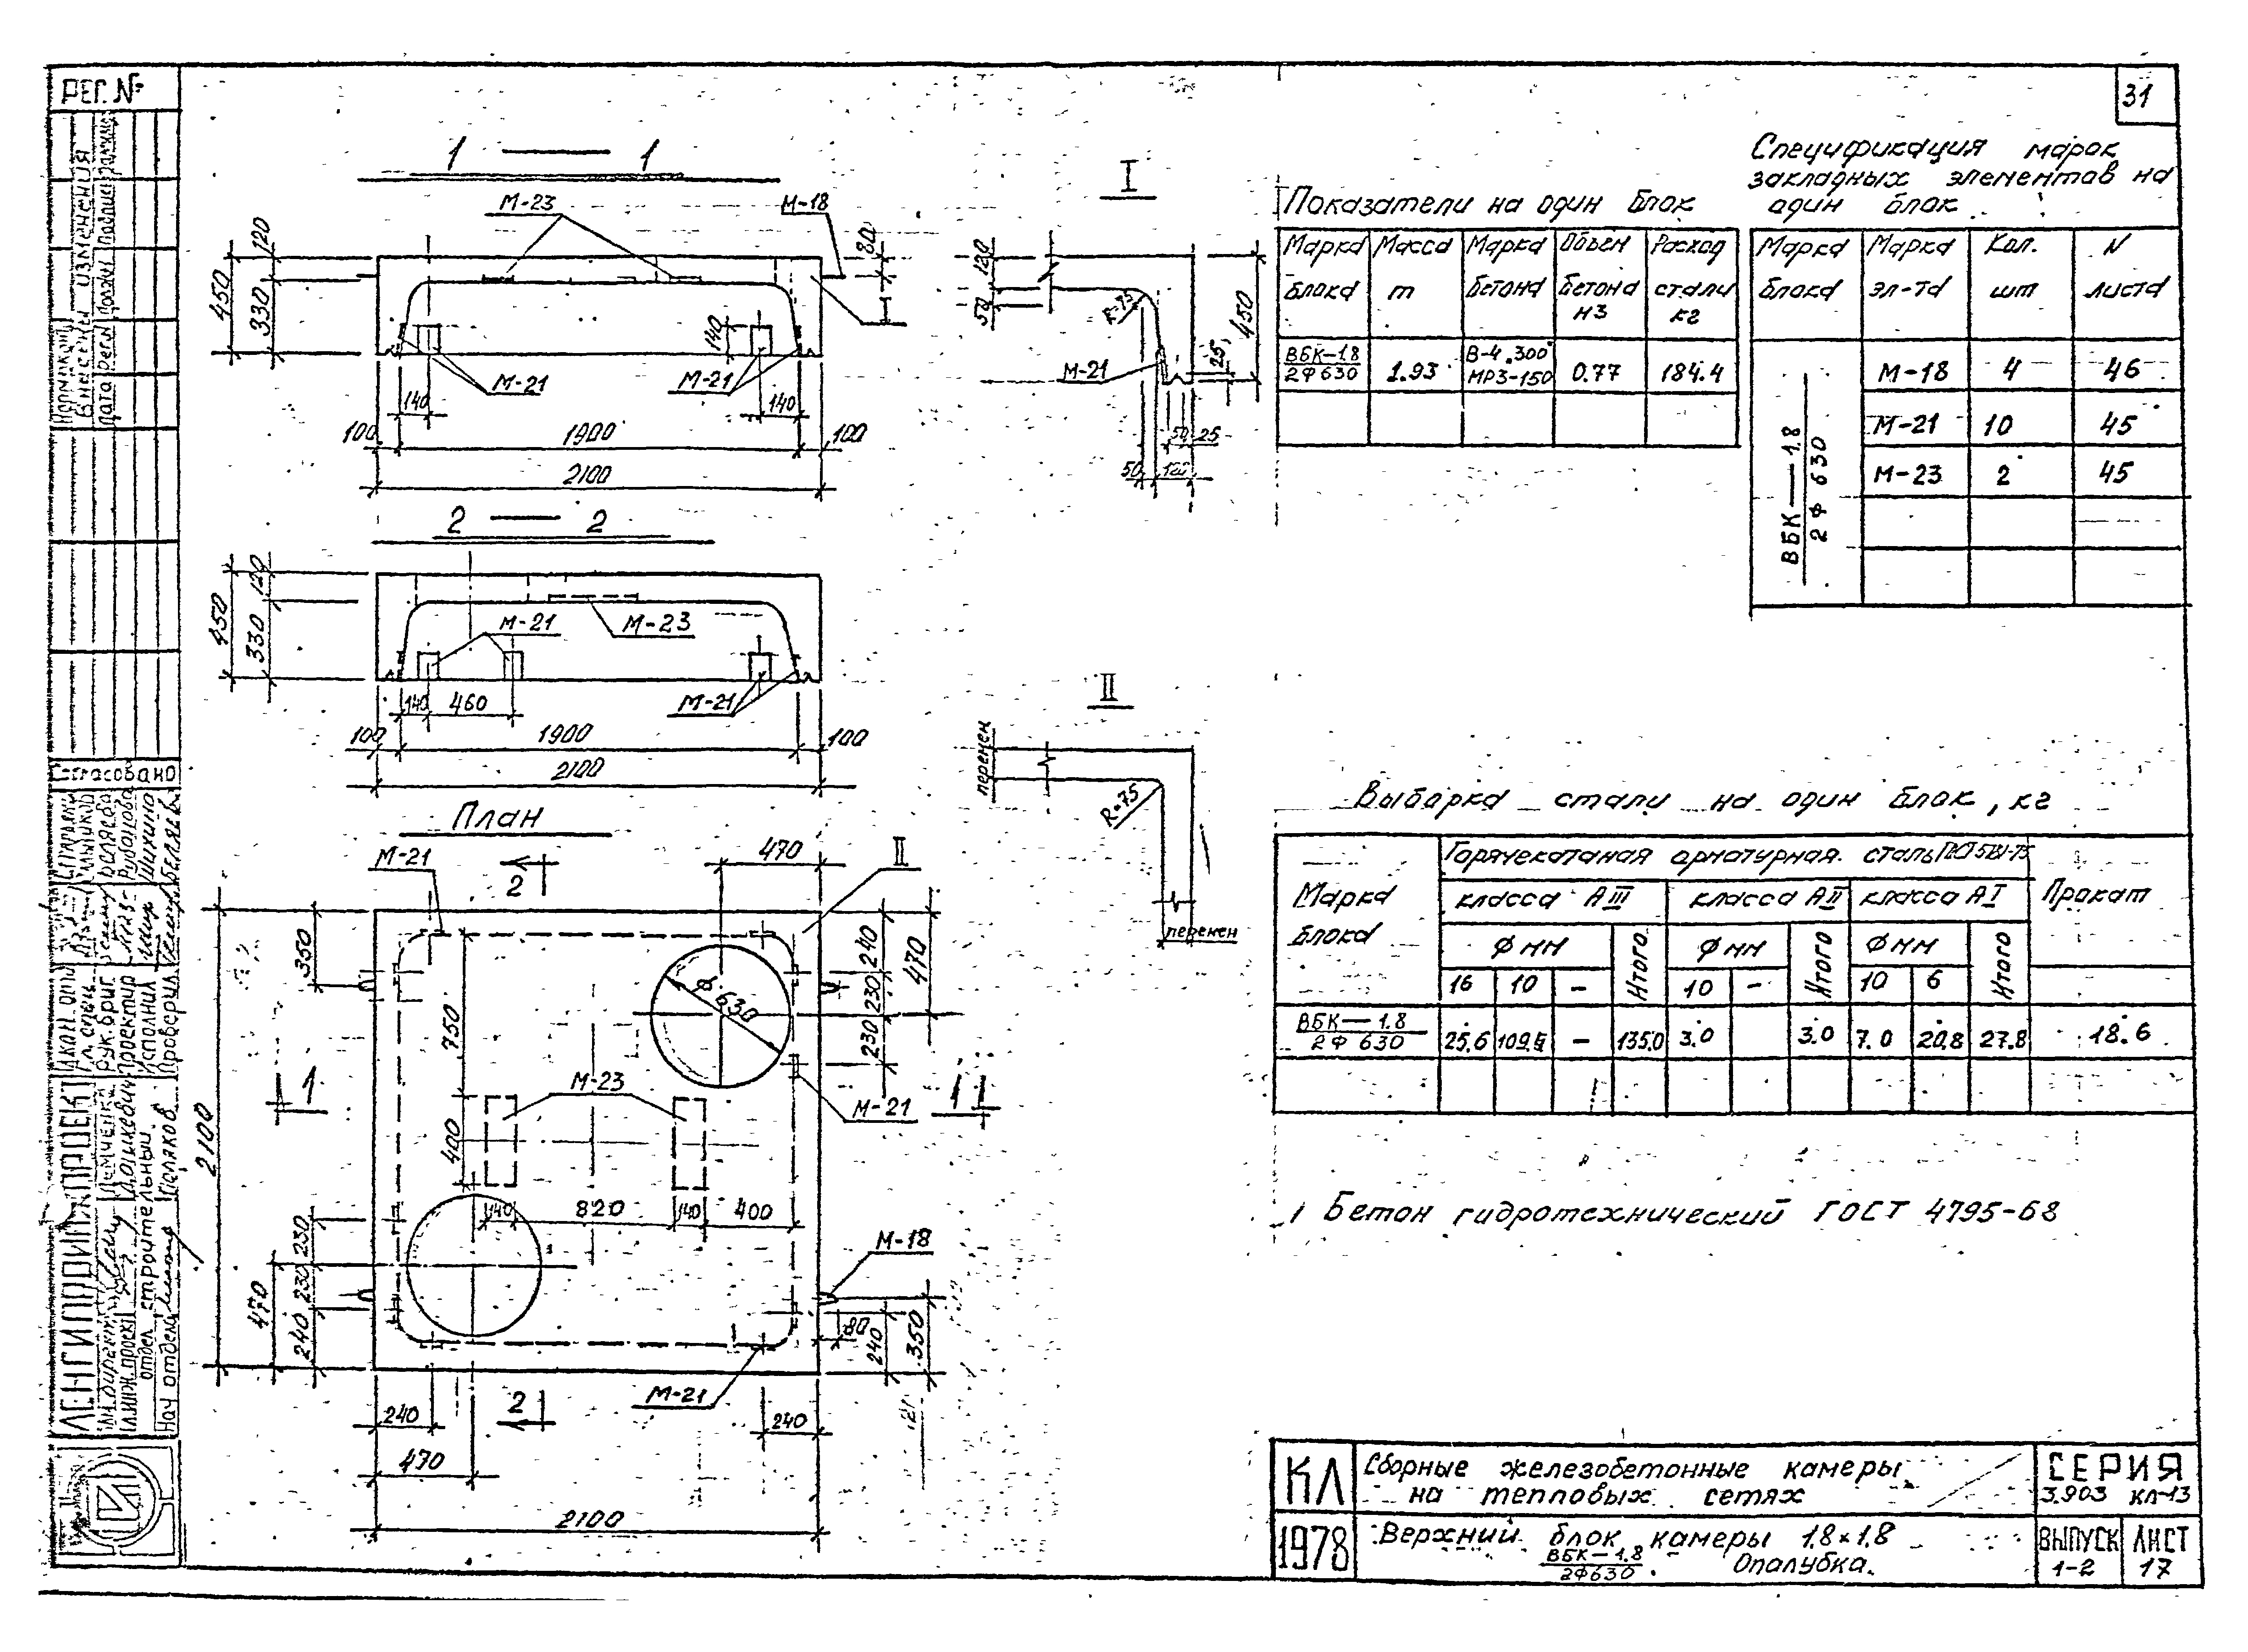 РЕГ. №
31
1 — 1
М-23
М-18
120
450
330
80
I
140
М-21
М-21
140
140
100
1900
100
2100
I
120
50
R=75
450
М-21
25
50 25
50
2 — 2
120
450
330
М-21
М-23
М-21
140
460
100
1900
100
2100
II
перемен
R=75
перемен
План
М-21
2
470
II
350
240
470
750
ф 630
230
230
1
М-23
М-21
1
2100
400
140
820
140
400
230
М-18
470
230
240
80
240
350
М-21
240
2
240
470
2100
Показатели на один блок
Марка блока
Масса т
Марка бетона
Объем бетона м3
Расход стали кг
ВБК—1.8
2Ф630
1.93
В-4 300
МРЗ-150
0.77
184.4
Спецификация марок
закладных элементов на
один блок
Марка блока
Марка эл-та
Кол. шт
N листа
ВБК—1.8
2Ф 630
М-18 4 46
М-21 10 45
М-23 2 45
Выборка стали на один блок, кг
Марка блока
Горячекатаная арматурная сталь
класса АIII
класса АII
класса АI
Прокат
Ф мм
Итого
Ф мм
Итого
Ф мм
Итого
16 10 –
10 –
10 6
ВБК—1.8
2Ф 630
25.6
–
135.0
3.0
3.0
7.0
20.8
27.8
18.6
1 Бетон гидротехнический ГОСТ 4795-68
КЛ
Сборные железобетонные камеры
на тепловых сетях
СЕРИЯ
3.903 КЛ-13
1978
Верхний блок камеры 1.8×1.8
ВБК—1.8
2Ф630
Опалубка.
ВЫПУСК
1-2
ЛИСТ
17
Согласовано
ЛЕНГИПРОИНЖПРОЕКТ
отдел строительный
Рук. бриг.
Проектир
Исполнил
Проверил